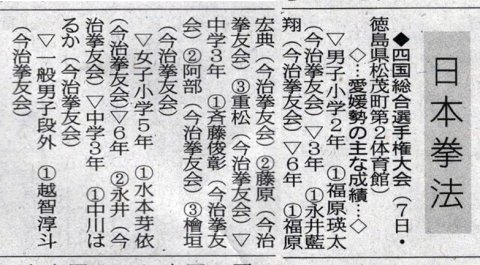 日本拳法
◆四国総合選手権大会(7日・
徳島県松茂町第2体育館)
◇…愛媛勢の主な成績…◇
▽男子小学2年 ①福原瑛太
(今治拳友会)▽3年 ①永井藍
翔(今治拳友会)▽6年 ①福原
宏典(今治拳友会)②藤原(今治
拳友会)③重松(今治拳友会)▽
中学3年 ①斉藤俊彰(今治拳友
会)②阿部(今治拳友会)③檜垣
(今治拳友会)
▽女子小学5年 ①水本芽依
(今治拳友会)▽6年 ②永井(今
治拳友会)▽中学3年 ①中川は
るか(今治拳友会)
▽一般男子段外 ①越智淳斗
(今治拳友会)